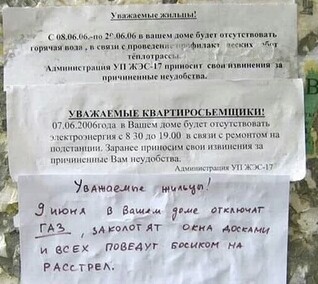 Уважаемые жильцы!
С 08.06.06.-по 28.06.06 в вашем доме будет отсутствовать
горячая вода , в связи с проведением профилактических работ
теплотрассы.
Администрация УП ЖЭС-17 приносит свои извинения за
причиненные неудобства.
УВАЖАЕМЫЕ КВАРТИРОСЪЕМЩИКИ!
07.06.2006года в Вашем доме будет отсутствовать
электроэнергия с 8 30 до 19.00 в связи с ремонтом на
подстанции. Заранее приносим свои извинения за
причиненные Вам неудобства.
Администрация УП ЖЭС-17
Уважаемые жильцы!
9 июня в Вашем доме отключат
ГАЗ, заколотят окна досками
и всех поведут босиком на
расстрел.